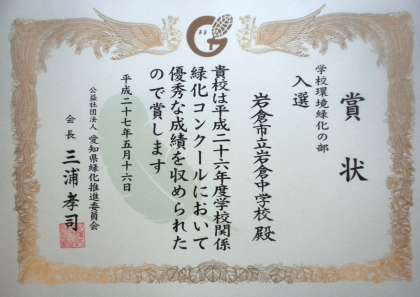 賞状
学校環境緑化の部
入選
岩倉市立岩倉中学校 殿
貴校は平成二十六年度学校関係
緑化コンクールにおいて
優秀な成績を収められた
ので賞します
平成二十七年五月十六日
公益社団法人 愛知県緑化推進委員会
会長 三浦孝司